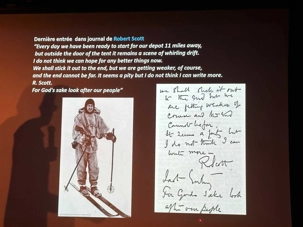 Dernière entrée dans journal de Robert Scott
"Every day we have been ready to start for our depot 11 miles away,
but outside the door of the tent it remains a scene of whirling drift.
I do not think we can hope for any better things now.
We shall stick it out to the end, but we are getting weaker, of course,
and the end cannot be far. It seems a pity but I do not think I can write more.
R. Scott.
For God's sake look after our people"
we shall stick it out
to the end but we
are getting weaker of
course and the end
cannot be far.
It seems a pity but
I do not think I can
write more –
R Scott
Last Entry
For Gods sake look
after our people